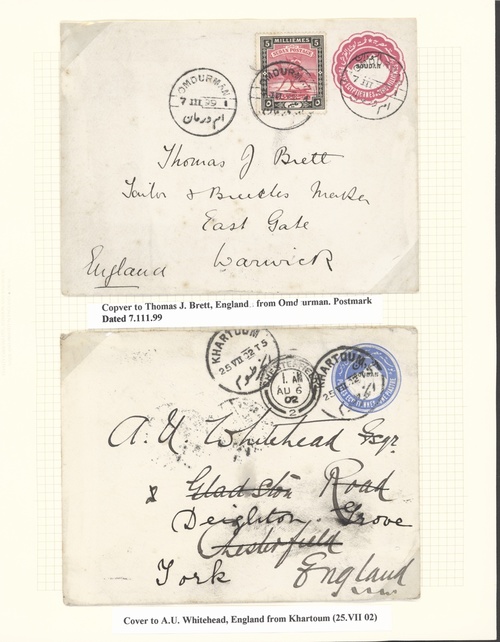 5 MILLIEMES 5
SUDAN POSTAGE
OMDURMAN
7 III 99
ام درمان
OMDURMAN
SOUDAN
7 III
Thomas J Brett
Tailor & Breeches Maker
East Gate
Warwick
England
Copver to Thomas J. Brett, England.. from Omd urman. Postmark
Dated 7.111.99
KHARTOUM
25 VII 02 T5
الخرطوم
CHESTERFIELD
1. AM
AU 6
02
2
KHARTOUM
25 VII 02 T5
A. U. Whitehead Esqr.
Gladston Road
Deighton Grove
Chesterfield
York England
Cover to A.U. Whitehead, England from Khartoum (25.VII 02)